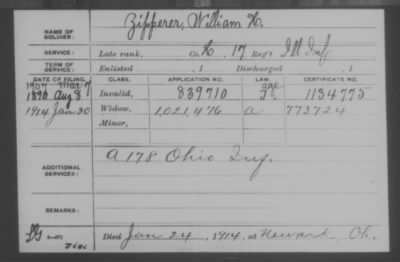 Zipperer, William H.
NAME OF SOLDIER:
SERVICE: Late rank, Co. K, 17 Reg't Ill Inf
TERM OF SERVICE: Enlisted , 1 Discharged , 1
DATE OF FILING. CLASS. APPLICATION NO. LAW. CERTIFICATE NO.
1907 Mar 7 age
1890 Aug 8 Invalid, 839710 1134775
1914 Jan 30 Widow, 1,021,476 a 773724
Minor,
A 178 Ohio Inf.
ADDITIONAL SERVICES:
REMARKS:
Died Jan 24, 1914, at Newark, Oh.